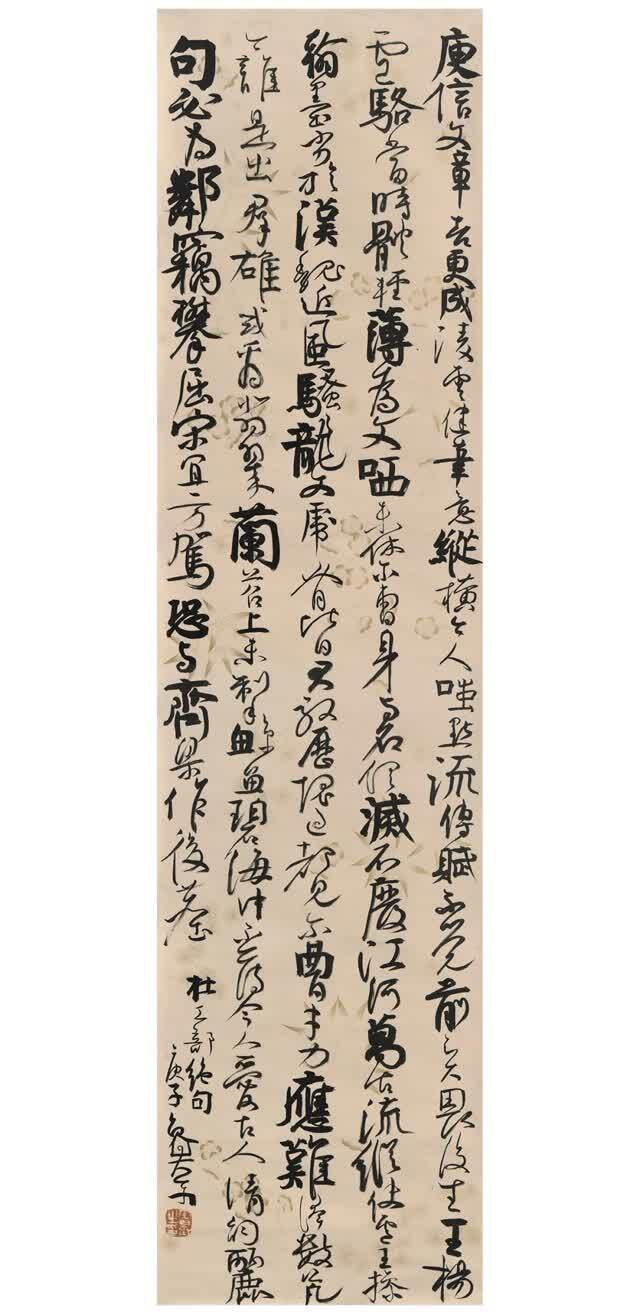 庾信文章老更成凌雲健筆意縱橫今人嗤點流傳賦不覺前賢畏後生王楊
盧駱當時體輕薄為文哂未休爾曹身與名俱滅不廢江河萬古流縱使盧王操
翰墨劣於漢魏近風騷龍文虎脊皆君馭歷塊過都見爾曹才力應難跨數公凡
今誰是出群雄或看翡翠蘭苕上未掣鯨魚碧海中不薄今人愛古人清詞麗
句必為鄰竊攀屈宋宜方駕恐與齊梁作後塵
杜工部絕句
庚子